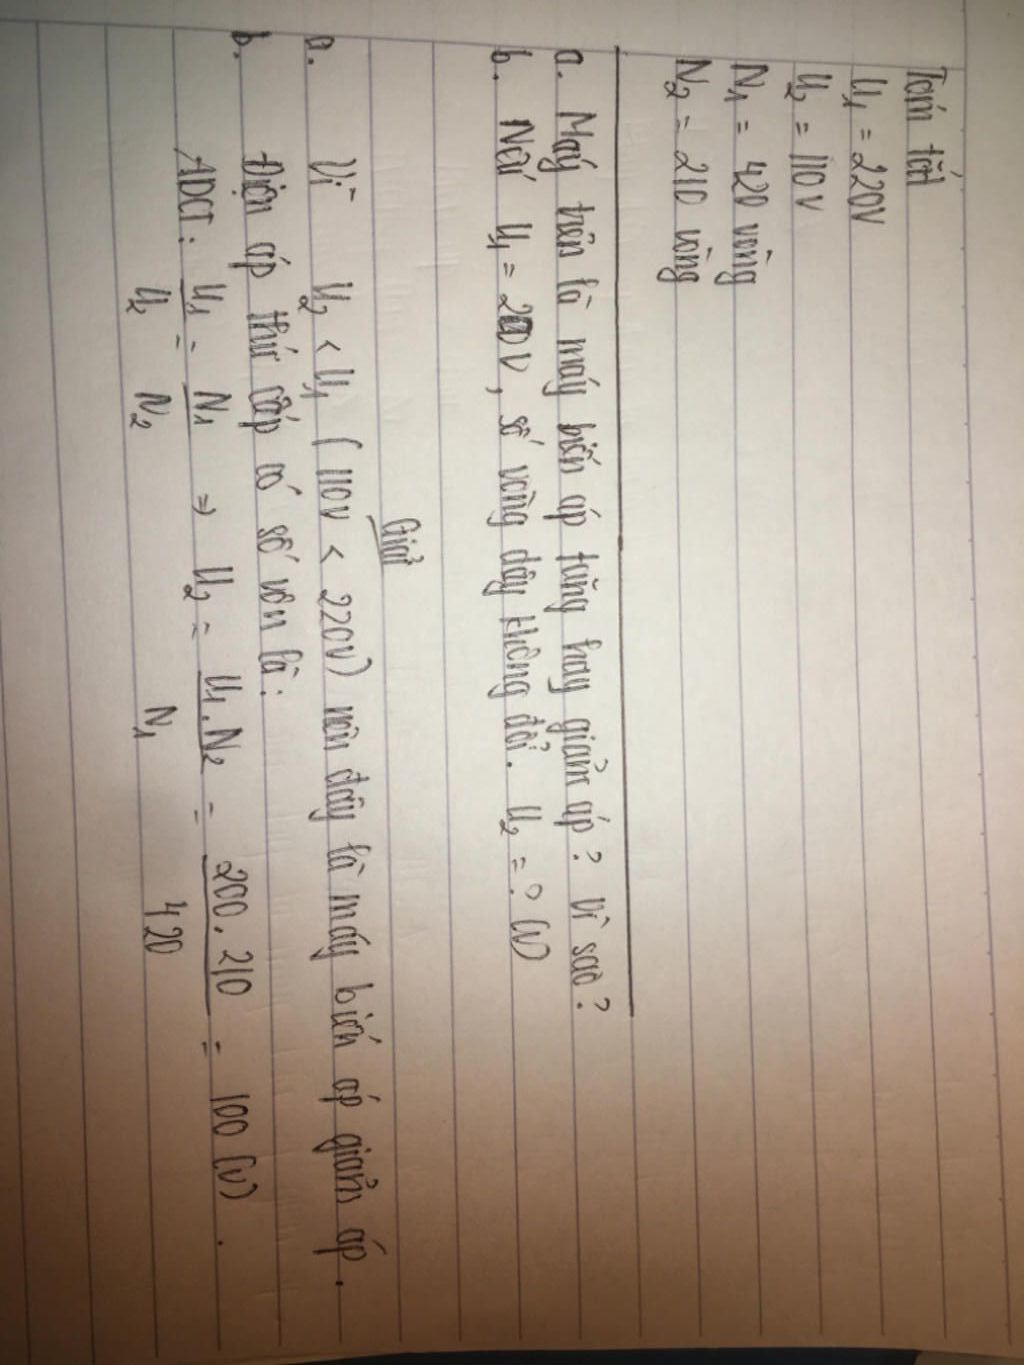 Tóm tắt
U1 = 220V
U2 = 110V
N1 = 420 vòng
N2 = 210 vòng
a. Máy trên là máy biến áp tăng hay giảm áp? Vì sao?
b. Nếu U1 = 200V, số vòng dây không đổi. U2 = ? (V)
Giải
a. Vì U2 < U1 (110V < 220V) nên đây là máy biến áp giảm áp.
b. Điện áp thứ cấp có số vôn là:
ADCT: U1/U2 = N1/N2 => U2 = U1.N2/N1 = 200.210/420 = 100 (V).